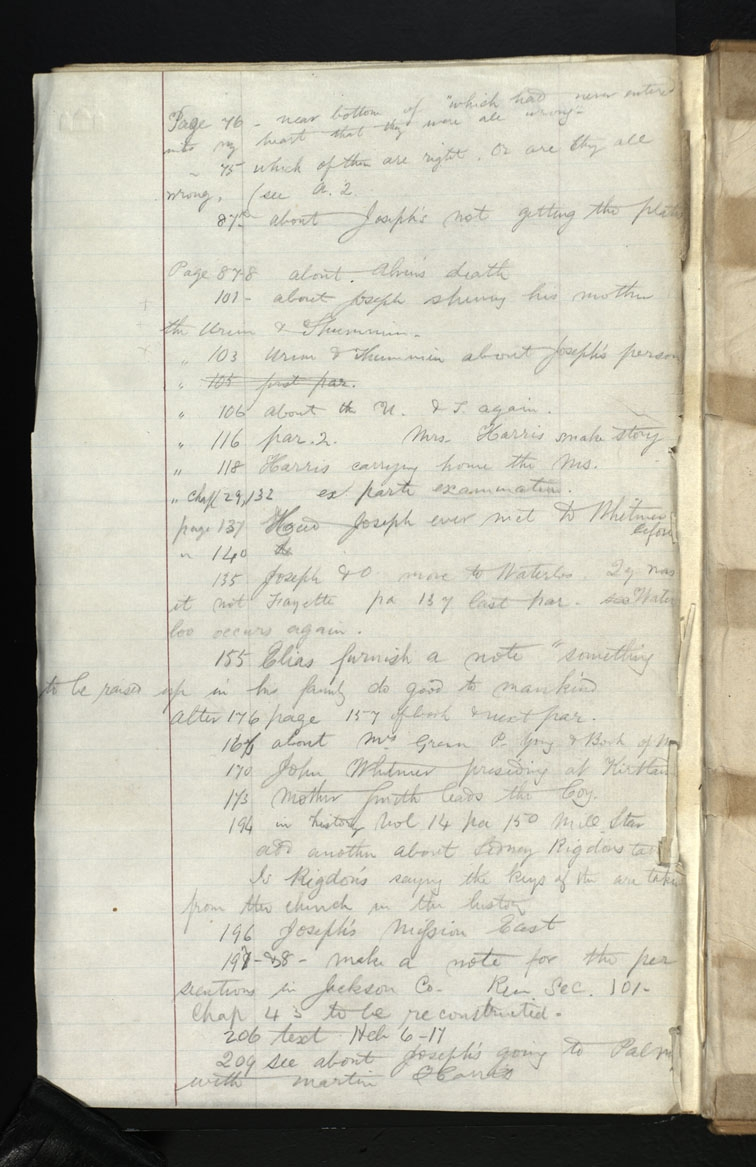 Page 76 - near bottom of "which had never entered
into my heart that they were all wrong"
" 75 which of them are right. Or are they all
wrong. (see A. 2
87 about Joseph's not getting the plates
Page 87-8 about Alvin's death
101 - about Joseph shewing his mother
the Urim & Thummim.
" 103 Urim & Thummim about Joseph's person
" 105 first par.
" 106 about the U. & T. again.
" 116 par. 2. Mrs. Harris make story
" 118 Harris carrying home the Ms.
" Chap 29, 132 ex parte examination.
page 137 Had Joseph ever met D Whitmer
before
" 140
135 Joseph & O move to Waterloo. Qy was
it not Fayette pa 137 last par. Water
loo occurs again.
155 Elias furnish a note "something
to be raised up in his family do good to mankind
alter 176 page 157 of book & next par.
167 about Mrs Green P. Yng & Book of M
170 John Whitmer presiding at Kirtland
173 Mother Smith leads the Coy.
194 in history Vol 14 pa 150 Mill. Star
add another about Sidney Rigdons
Is Rigdon's saying the keys of the are taken
from the church in the history
196 Joseph's Mission East
197-&8 - make a note for the per
secutions in Jackson Co- Rev. Sec. 101-
Chap 43 to be reconstructed.
206 text Heb 6-17
209 see about Joseph's going to Palm
with Martin Harris